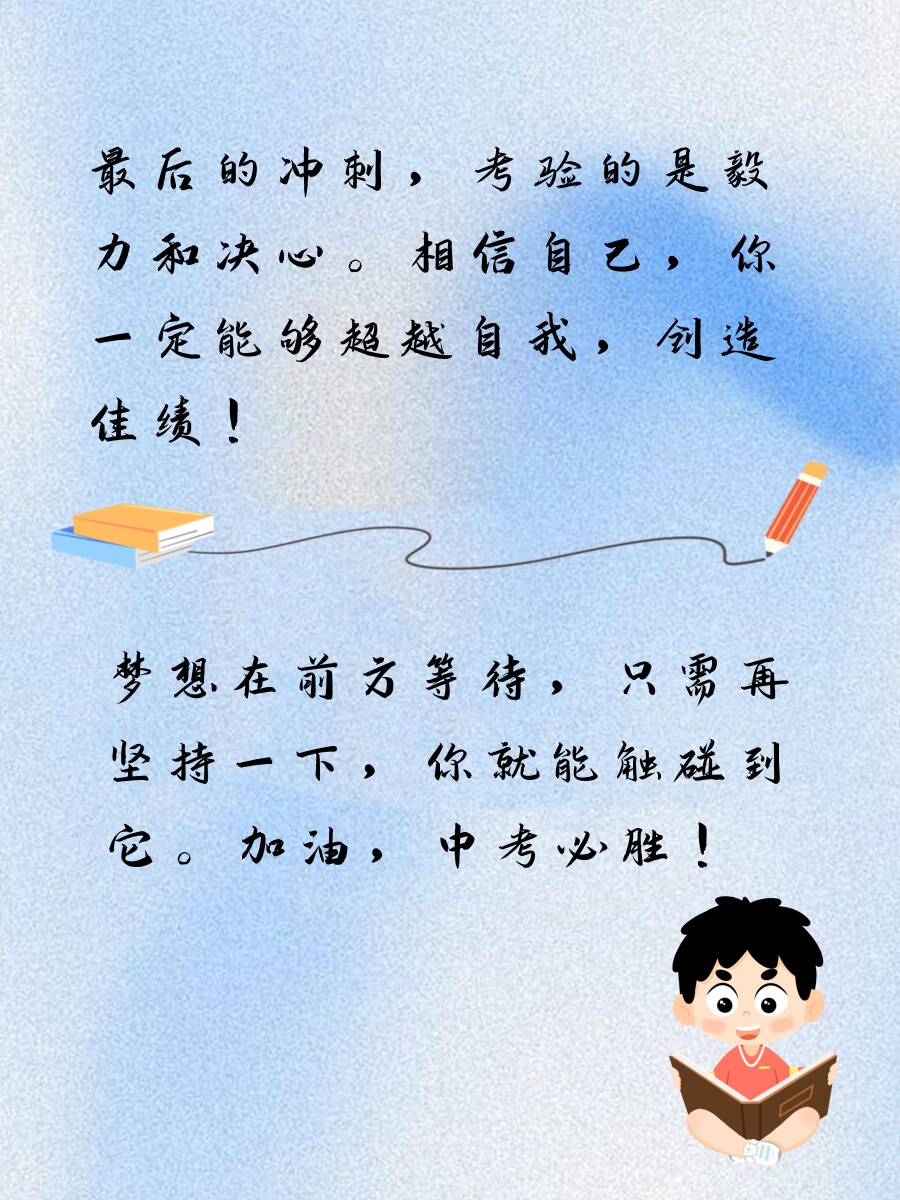 最后的冲刺，考验的是毅
力和决心。相信自己，你
一定能够超越自我，创造
佳绩！
梦想在前方等待，只需再
坚持一下，你就能触碰到
它。加油，中考必胜！